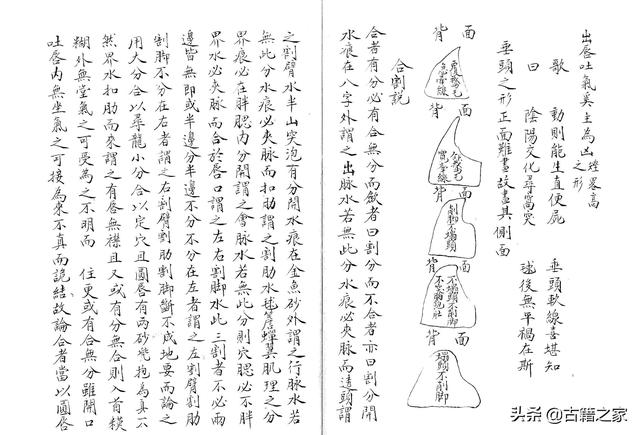 出唇吐氣莫主為凶
煌畧高
之形
歌　動則能生直便屍　垂頭軟線喜堪知
曰　陰陽交化尋窩突　毬後無平禍在斯
垂頭之形正面難畫故畫其側面
面
背
面
背
面
背
削脚不塌頭
面
背
不塌頭不削脚
面
背
塌頭不削脚
合割說
合者有分必有合無分而斂者曰割分而不合者亦曰割分開
水痕在八字外謂之出脉水若無此分水痕必夾脉而遶頭謂
之割臂水半山突泡有分開水痕在金魚砂外謂之行脉水若
無此分水痕必夾脉而扣肋謂之割肋水毬簷蟬翼肌理之分
界痕必在胖腮內分開謂之會脉水若無此分則穴腮必不胖
界水必夾脉而合於唇口謂之左右割脚水此三割者不必兩
邊皆無即或半邊分半邊不分不分在左者謂之左割臂割肋
割脚不分在右者謂之右割臂割肋割脚斷不成地要而論之
用大分合以尋龍小分合以定穴且圓唇有兩砂兜抱為真不
然界水扣肋而來謂之有唇無襟且又或有分無合則入首模
糊外無堂氣之可受為之不明而　住更或有合無分雖開口
吐唇內無生氣之可接為來不真而詭結故論合者當以圓唇
头条 @古籍之家